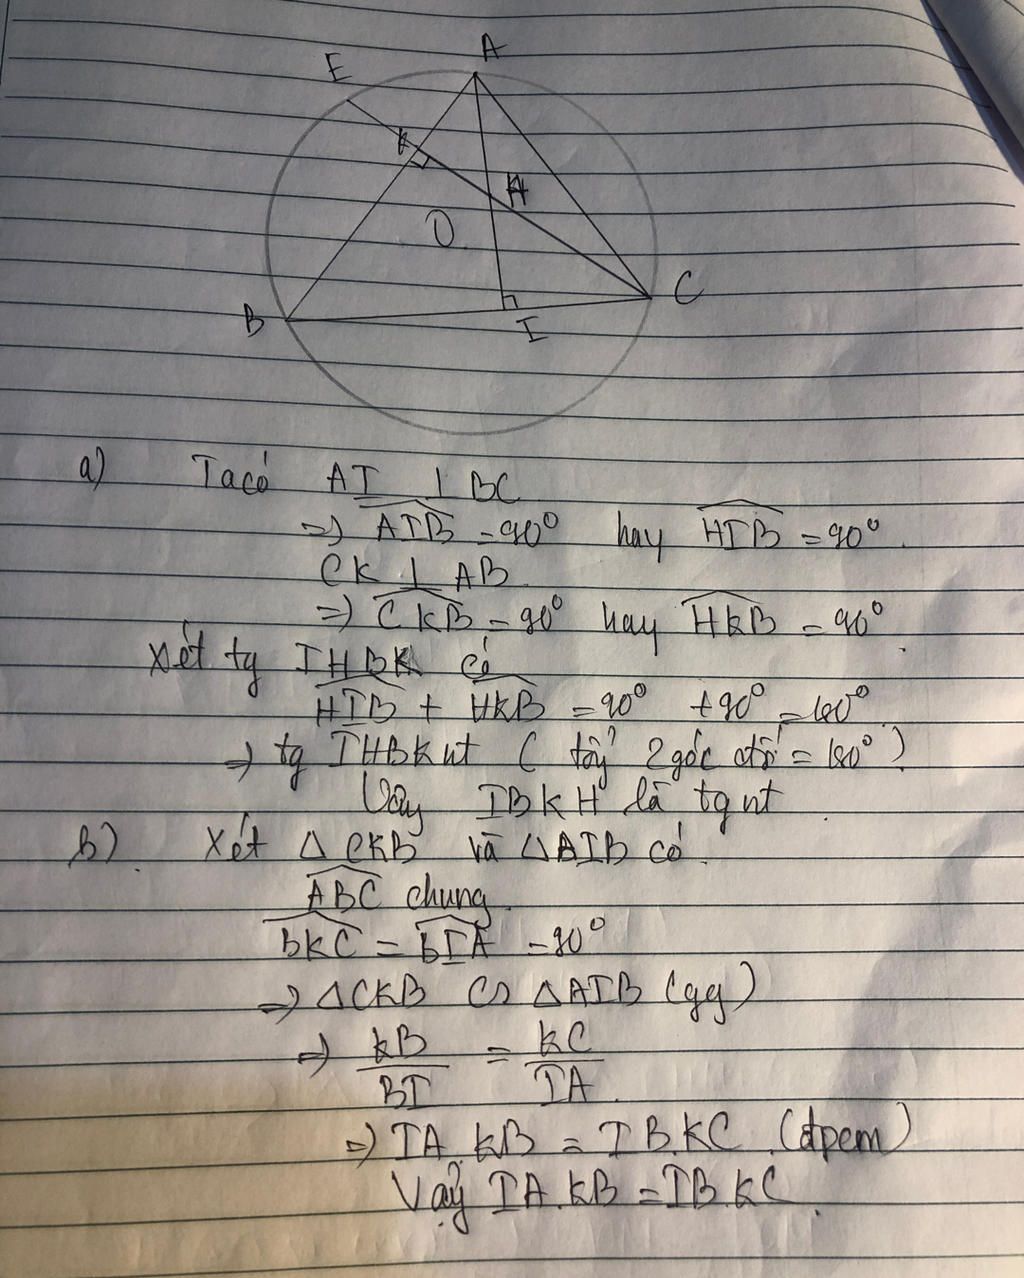 E
A
K
H
O
C
B
I
a) Ta có AI ⊥ BC
=> AIB = 90° hay HIB = 90°.
CK ⊥ AB
=> CKB = 90° hay HKB = 90°.
Xét tg IHBK có
HIB + HKB = 90° + 90° = 180°
=> tg IHBK nt ( tổng 2 góc đối = 180° )
Vậy IBKH là tg nt
b) Xét △ CKB và △AIB có
ABC chung
BKC = BIA = 90°
=> △CKB ∽ △AIB (gg)
=> KB/BI = KC/IA
=> IA.KB = IB.KC (đpcm)
Vậy IA.KB = IB.KC